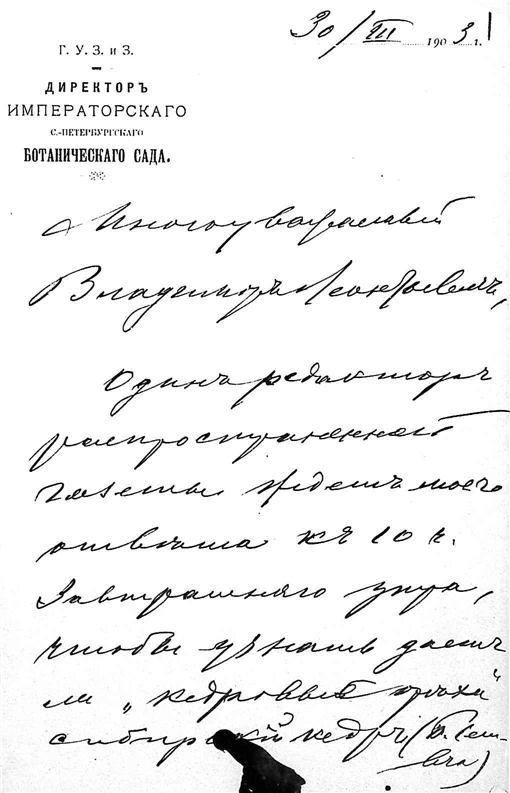 30/III 1903 г.
Г. У. З. и З.
ДИРЕКТОРЪ
ИМПЕРАТОРСКАГО
С.-ПЕТЕРБУРГСКАГО
БОТАНИЧЕСКАГО САДА.
Многоуважаемый
Владимиръ Леонтьевичъ,
Одинъ редакторъ
распространенной
газеты ждетъ моего
отвѣта къ 10 ч.
Завтрашняго утра,
чтобы узнать даетъ
ли „кедровые орѣхи“
сибирскій кедръ